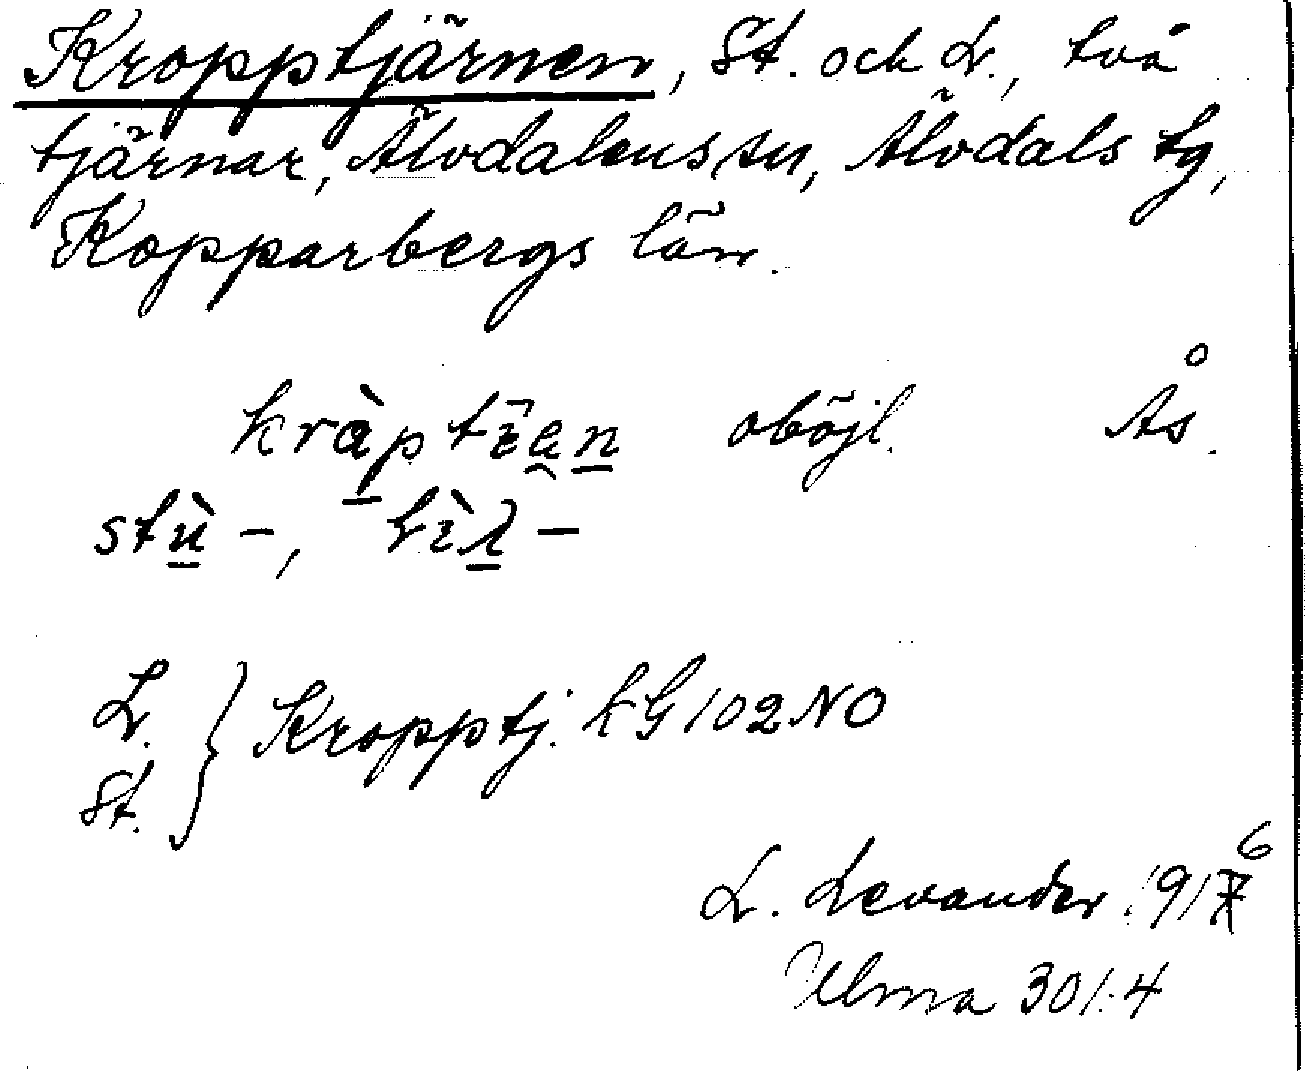 Kropptjärnen, St. och L., två
tjärnar, Älvdalens sn, Älvdals tg,
Kopparbergs län.
kràp tīan oböjl. Ås.
stù -, lìl -
L.
St. } Kropptj. kG 102 NO
L. Levander 1916
Ulma 301:4